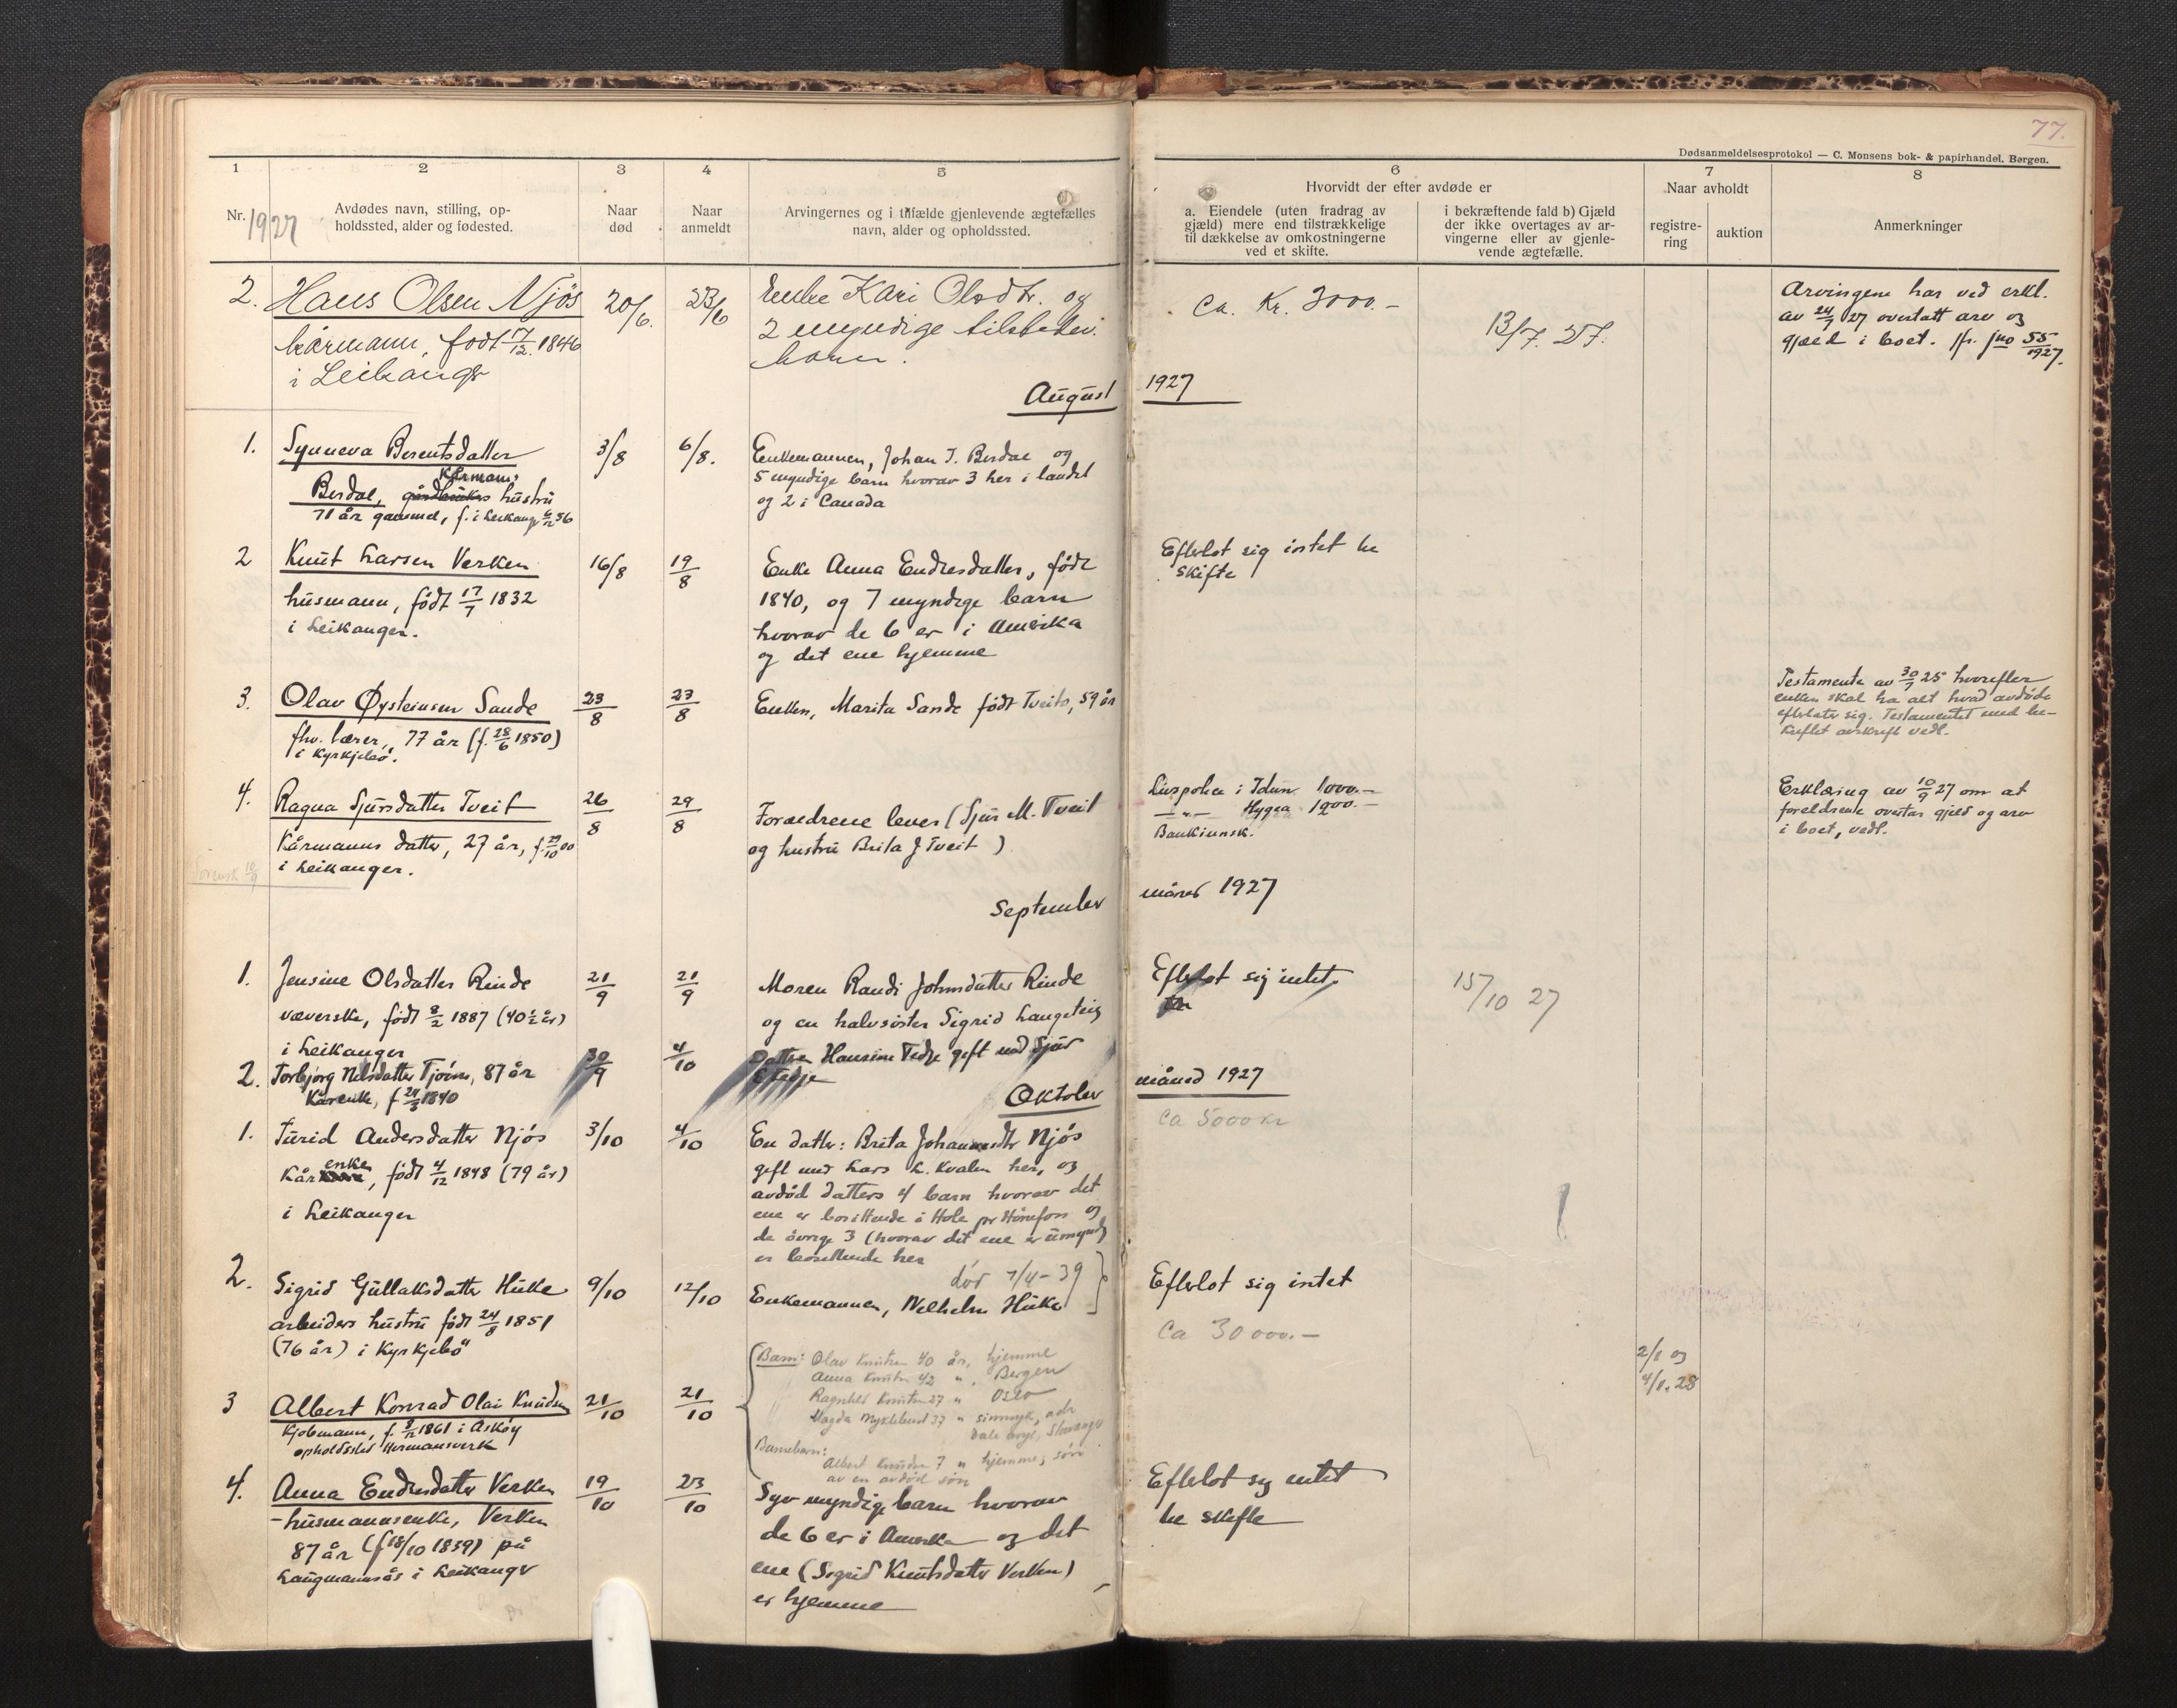 77.
Dødsanmeldelsesprotokol — C. Monsens bok- & papirhandel, Bergen.
1 2 3 4 5 6 7 8
Nr. 1927
Avdødes navn, stilling, op-
holdssted, alder og fødested.
Naar
død
Naar
anmeldt
Arvingernes og i tilfælde gjenlevende ægtefælles
navn, alder og opholdssted.
Hvorvidt der efter avdøde er
a. Eiendele (uten fradrag av
gjæld) mere end tilstrækkelige
til dækkelse av omkostningerne
ved et skifte.
i bekræftende fald b) Gjæld
der ikke overtages av ar-
vingerne eller av gjenle-
vende ægtefælle.
Naar avholdt
registre-
ring
auktion
Anmerkninger
2. Hans Olsen Njøs
kårmann, født 17/12. 1846
i Leikanger
20/6.
23/6
Enke Kari Olsdtr. og
2 myndige tilstedev.
barn.
Ca. Kr. 3000.-
13/7. 27.
Arvingene har ved erkl.
av 24/7 27 overtatt arv og
gjæld i boet. Jfr. jno 55/1927.
August 1927
1. Synneva Berentsdatter
Kårmans
Berdal, hustru
71 år gammel, f. i Leikanger 6/12 56
3/8
6/8.
Enkemannen, Johan J. Berdal og
5 myndige barn hvorav 3 her i landet
og 2 i Canada
2 Knut Larsen Verken
husmann, født 17/7 1832
i Leikanger.
16/8
19/8
Enke Anna Endresdatter, født
1840, og 7 myndige barn
hvorav de 6 er i Amerika
og det ene hjemme
Efterlot sig intet te
skifte
3. Olav Øysteinsen Sande
fhv. lærer, 77 år (f. 28/6 1850)
i Kyrkjebø.
23/8
27/8
Enken, Marita Sande født Tveito, 59 år
Testamente av 30/7 25 hvorefter
enken skal ha alt hvad avdøde
efterlater sig. Testamentet med be-
kreftet avskrift vedl.
4. Ragna Sjursdatter Tveit
Kårmanns datter, 27 år, f. 29/10 00
i Leikanger.
26/8
29/8
Foreldrene lever (Sjur M. Tveit
og hustru Brita J Tveit)
Livspolice i Idun 1000.-
—"— Hygea 1900.-
Bankinnsk.
Erklæring av 10/9 27 om at
foreldrene overtar gjeld og arv
i boet, vedl.
September måned 1927
1. Jensine Olsdatter Rinde
væverske, født 8/2 1887 (40½ år)
i Leikanger
21/9
21/9
Moren Randi Johnsdatter Rinde
og en halvsøster Sigrid Langeteig
Efterlot sig intet
15/10 27
2. Torbjørg Nilsdatter Tjønn, 87 år
Kårenke, f 24/3 1840
30/9
4/10
Datter Hansine Tedje gift med Sjur
Oktober måned 1927
1. Turid Andersdatter Njøs
enke
Kår, født 4/12 1848 (79 år)
i Leikanger
3/10
4/10
En datter: Brita Johannesdtr Njøs
gift med Lars L. Kvalen her, og
avdød datters 4 barn hvorav det
ene er bosittende i Hole pr Hønefoss og
de øvrige 3 (hvorav det ene er umyndig)
er bosittende her
Ca 5000 kr
2. Sigrid Gullaksdatter Huke
arbeiders hustru født 24/8 1851
(76 år) i Kyrkjebø
9/10
12/10
dør 7/4-39
Enkemannen, Vilhelm Huke
Efterlot sig intet
3 Albert Konrad Olai Knudsen
Kjøbmann, f. 8/12 1861 i Askøy
opholdssted Hermansverk
21/10
21/10
Barn: Olav Knutsen 40 år, hjemme
Anna Knutsen 42 ", Bergen
Ragnhild Knutsen 27 " Oslo
Magda Myklebust 37 " sinnsyk, adr
Dale asyl, Stavanger
Barnebarn:
Albert Knudsen 7 " hjemme, sønn
av en avdød sønn
Ca 30 000.-
2/1 og
4/1.28
4. Anna Endresdatter Verken
- husmannsenke, Verken
87 år (f 18/10 1839) på
Haugmannsås i Leikanger
19/10
23/10
Syv myndige barn hvorav
de 6 er i Amerika og det
ene (Sigrid Knutsdatter Verken)
er hjemme
Efterlot sig intet
te skifte